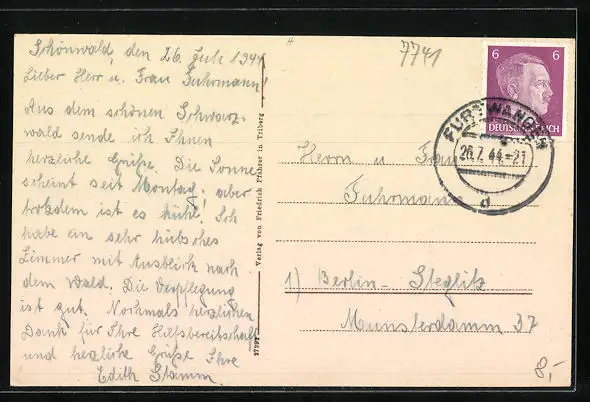 Schönwald, den 26. Juli 1944
Lieber Herr u. Frau Fuhrmann!
Aus dem schönen Schwarz-
wald sende ich Ihnen
herzliche Grüße. Die Sonne
scheint seit Montag, aber
trotzdem ist es kühl! Ich
habe ein sehr hübsches
Zimmer mit Ausblick nach
dem Wald. Die Verpflegung
ist gut. Nochmals herzlichen
Dank für Ihre Hilfsbereitschaft
und herzliche Grüße Ihre
Edith Stamm.
Verlag von Friedrich Pfährer in Triberg
7741
6 6
DEUTSCHES REICH
FURTWANGEN
26.7.44.-21
d
Herrn u. Frau
Fuhrmann
1) Berlin-Steglitz
Munsterdamm 37
8,-